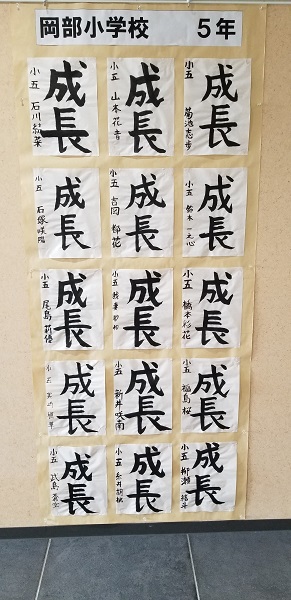 岡部小学校　５年
成長
小五 石川
成長
小五 山本花音
成長
小五 菊池志歩
成長
小五 石塚咲陽
成長
小五 吉岡
成長
小五 鈴木一之心
成長
小五 尾島莉優
成長
小五
成長
小五 橋本彩花
成長
小五
成長
小五 新井咲南
成長
小五 福島桜
成長
小五 武島
成長
小五
成長
小五 柳瀬